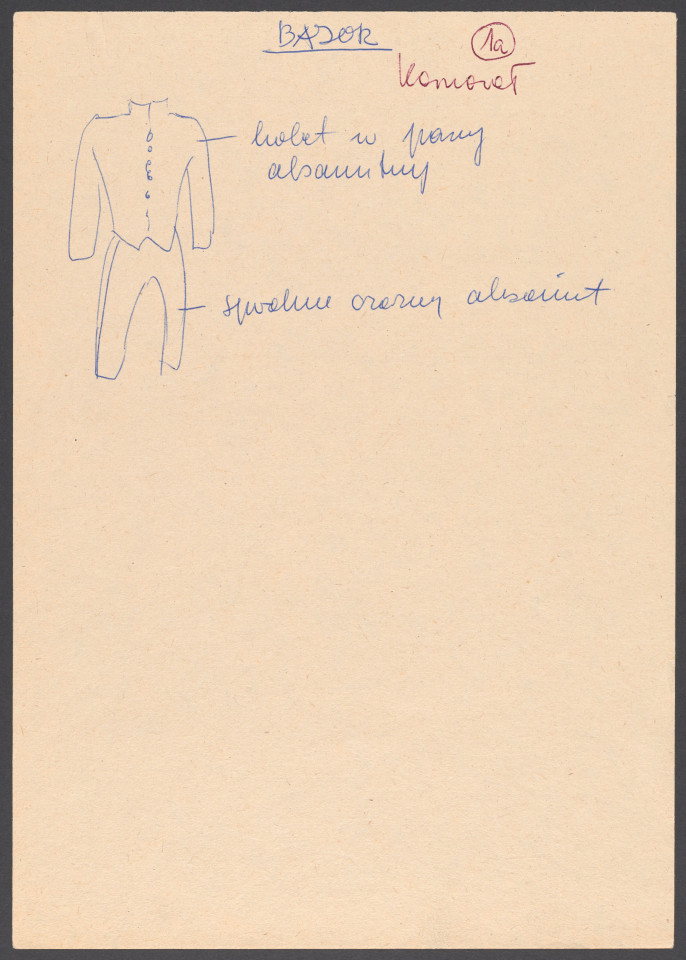 BAJOR
1a
Komorof
kolet w pasy
aksamitny
spodnie czarny aksamit